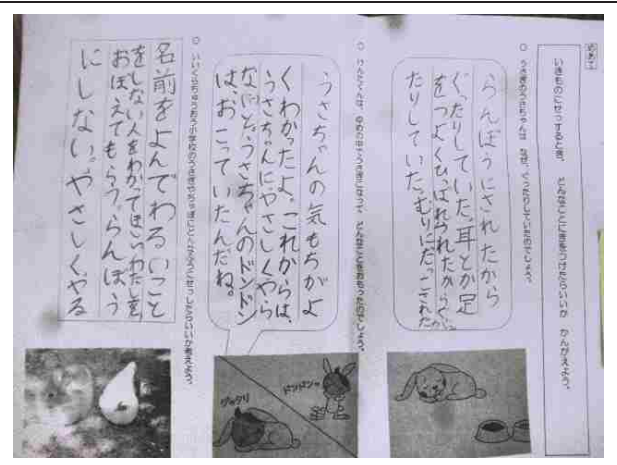 めあて
いきものにせっするとき、どんなことにきをつけたらいいか かんがえよう。
○ うさぎのうさちゃんは なぜ、ぐったりしていたのでしょう。
らんぼうにされたから
ぐったりしていた。耳とか足
をつよくひっぱられたから
たりしていた。むりにだっこされた
○ けんたくんは、ゆめの中でうさぎになって どんなことをおもったのでしょう。
うさちゃんの気もちがよ
くわかったよ。これからは、
うさちゃんにやさしくやら
ないと。うさちゃんのドンドン
は、おこっていたんだね。
ドンドンッ
グッタリ
小学校のうさぎやちゃぼにどんなふうにせっしたらいいか考えよう。
名前をよんでわるいこと
をしない人をわかってほしい。わたしを
おぼえてもらう。らんぼう
にしない。やさしくやる